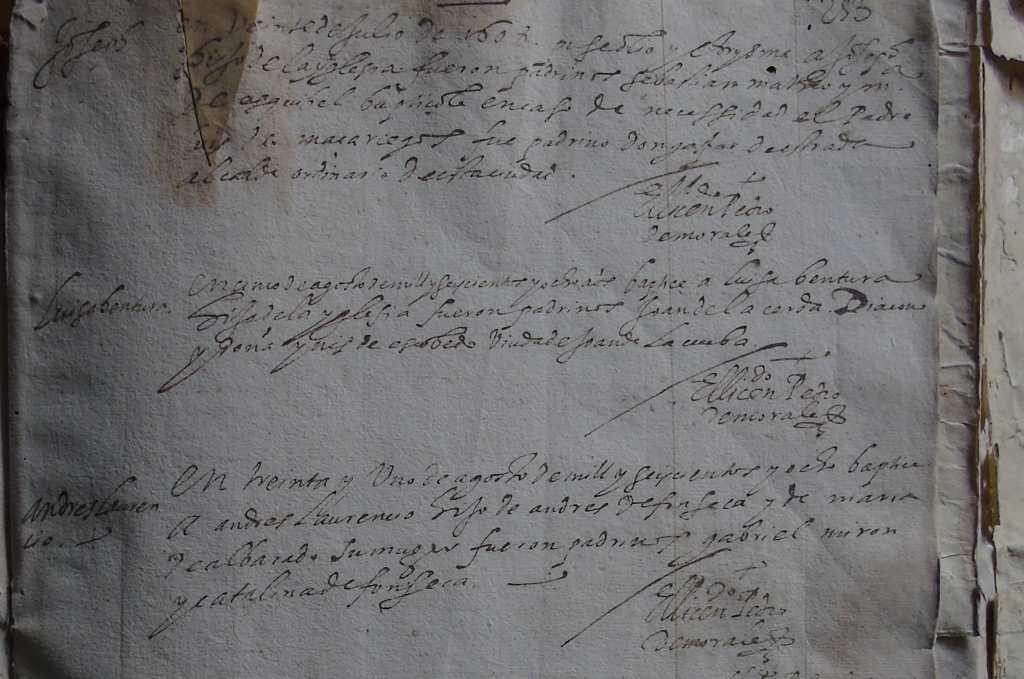 253
Joseph
en veinte de Julio de 1608 puse olio y chrysma a Joseph
hijo de la yglesia fueron padrinos sebastian matheo y m
de esquibel baptizole en caso de necessidad el Padre
luis de macariegos fue padrino don gaspar de estrada
alcalde ordinario desta ciudad.
El lldo
Ellicen Pedro
de morales
Luisa bentura.
en cinco de agosto de mill y seiscientos y ocho años baptice a luisa bentura
hija de la yglesia fueron padrinos Joan de la cerda. Diacono
y doña ynes de escobedo viuda de Joan de la cueba
do
Ellicen Pedro
de morales
Andres Lauren
cio.
En treinta y Uno de agosto de mill y seiscientos y ocho baptice
A andres Laurencio hijo de andres de fonseca y de maria
de albarado su muger fueron padrinos gabriel miron
y catalina de fonseca.
do
Ellicen Pedro
de morales